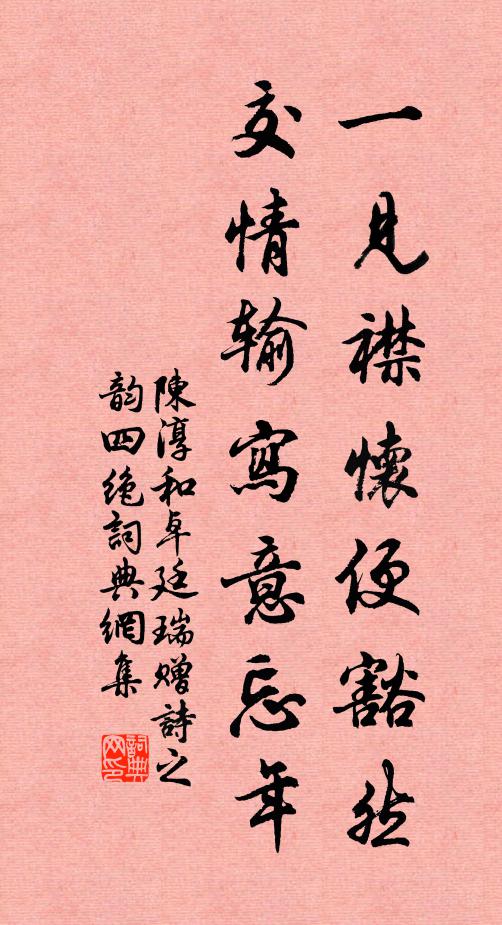 一見襟懷便豁然
交情输寫意忘年
陳淳和卓廷瑞贈詩之
韵四绝詞典網集
詞典网印